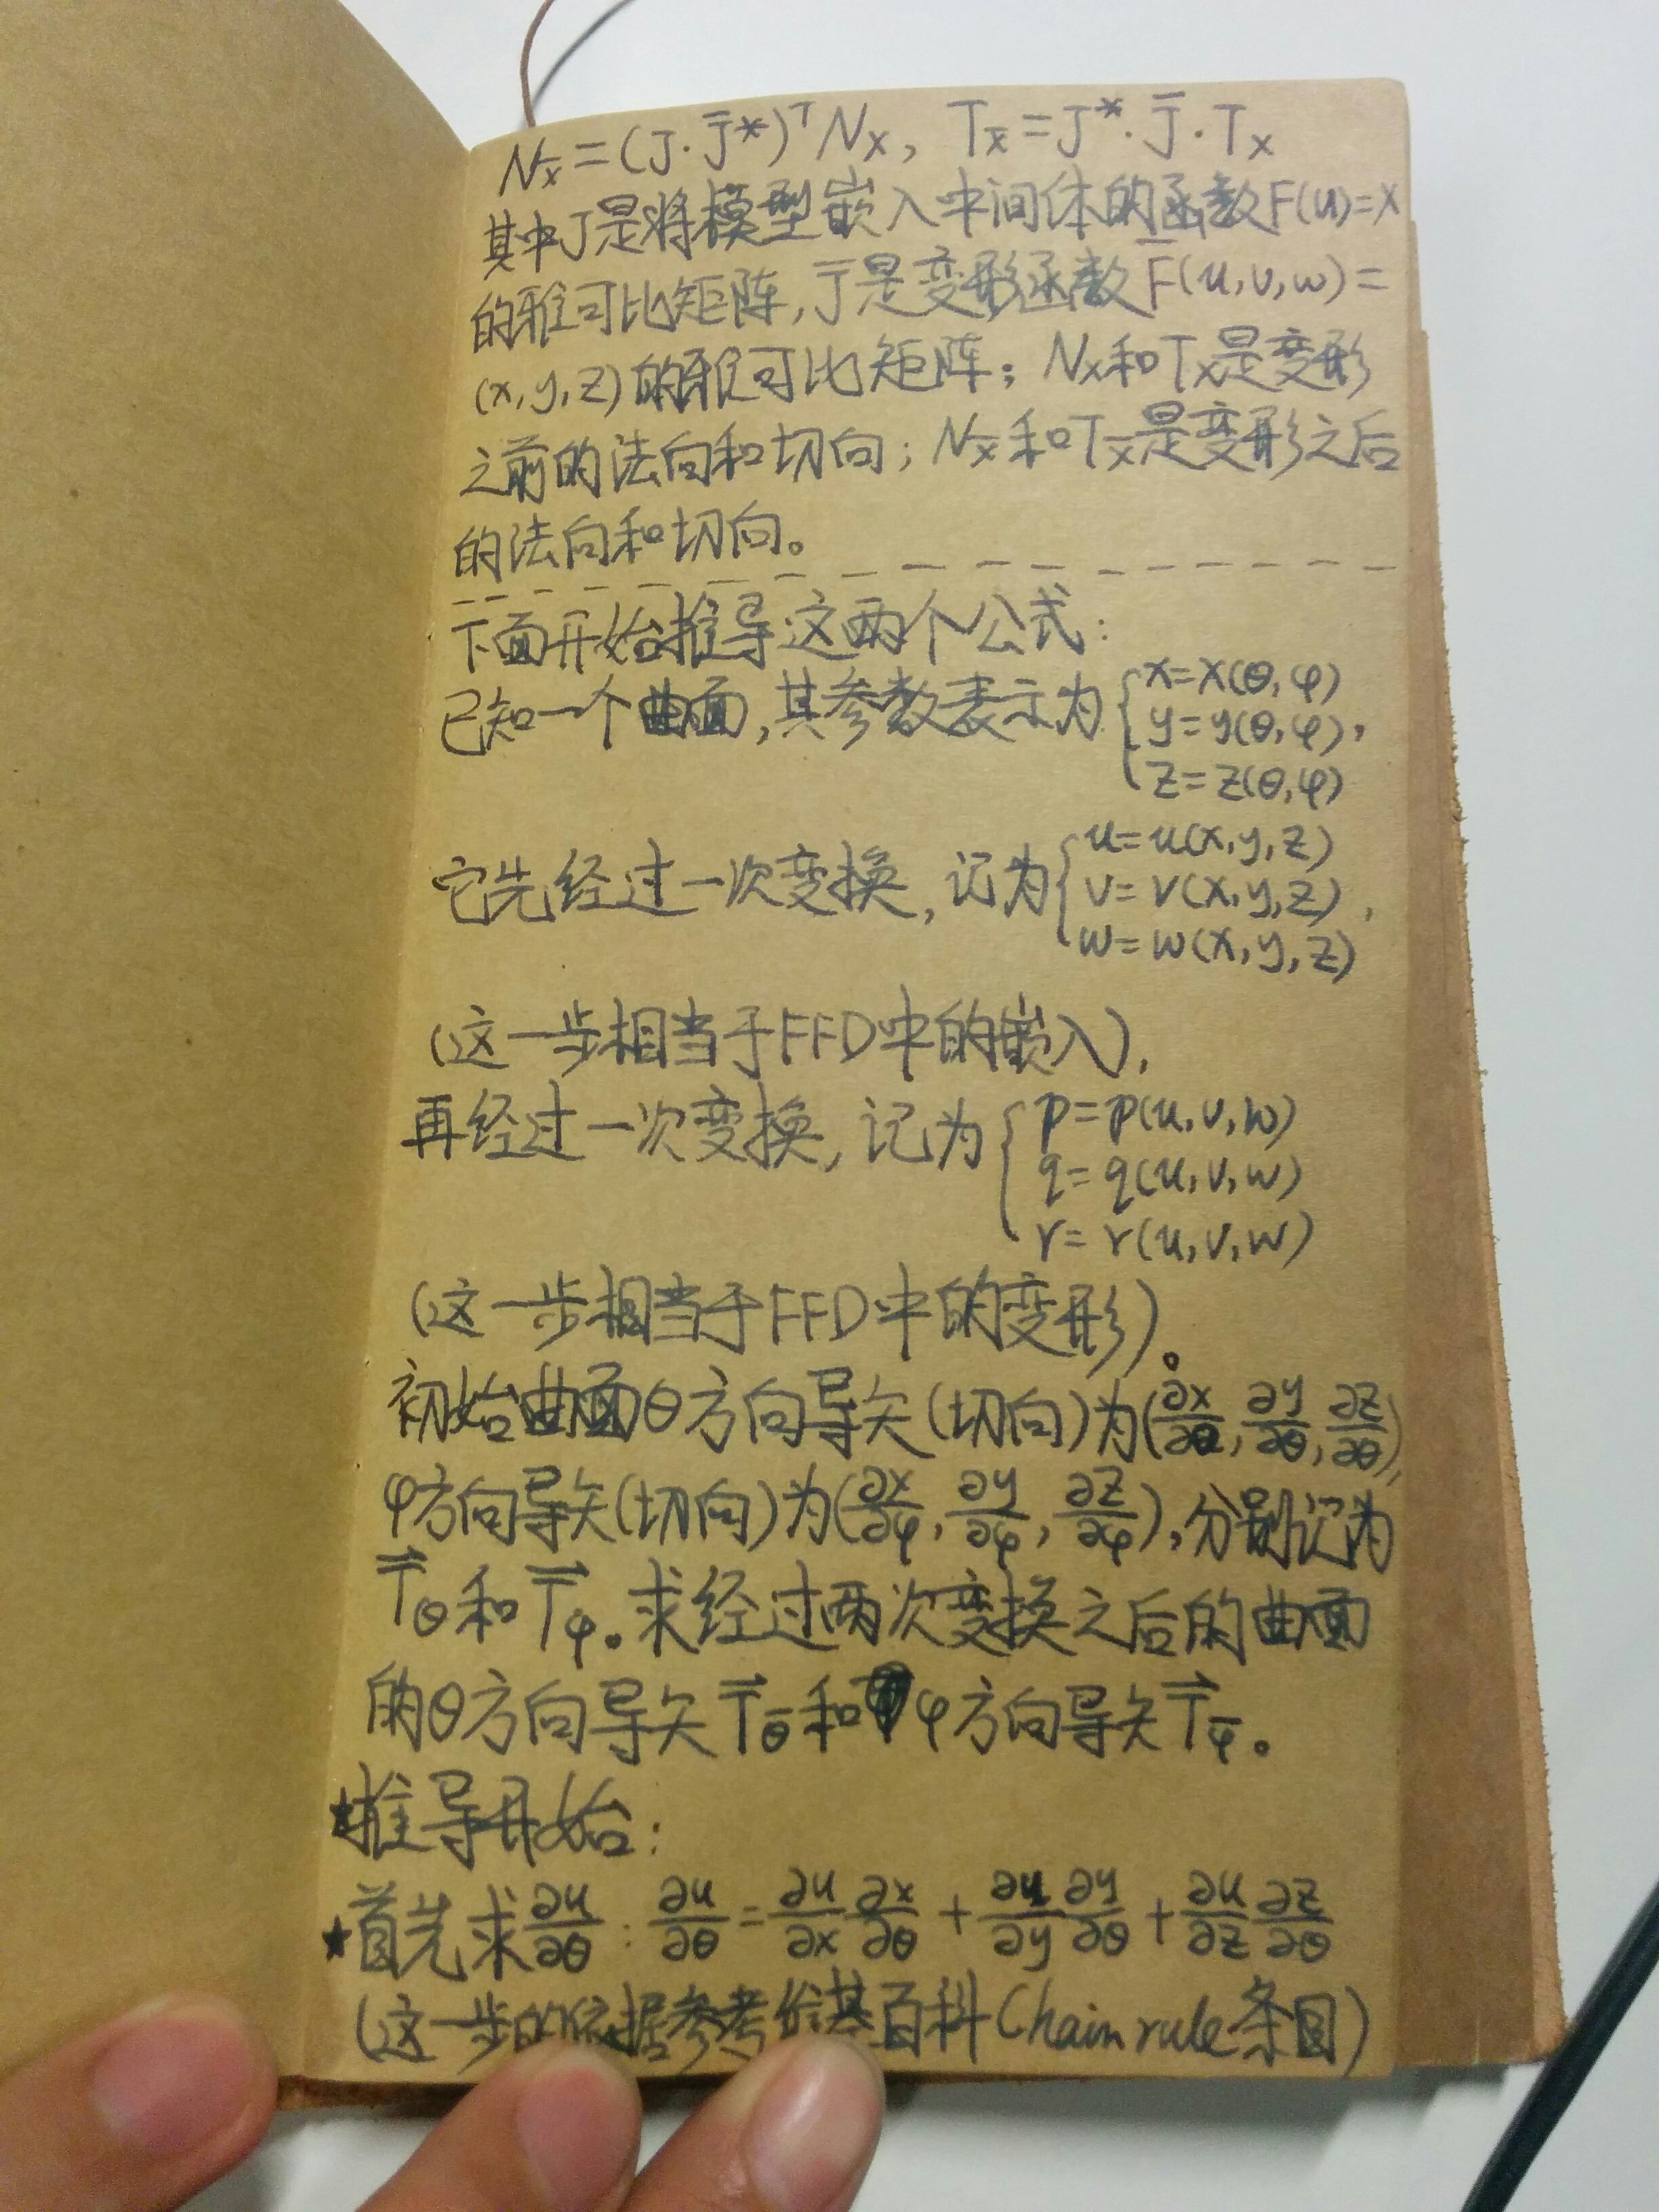 N_x̄ = (J·J̄*)ᵀ N_x, T_x̄ = J*·J̄·T_x
其中J是将模型嵌入中间体的函数F(u)=x
的雅可比矩阵,J̄是变形函数F̄(u,v,w)=
(x,y,z)的雅可比矩阵; N_x和T_x是变形
之前的法向和切向; N_x̄和T_x̄是变形之后
的法向和切向。
下面开始推导这两个公式:
已知一个曲面,其参数表示为{x=x(θ,φ)
y=y(θ,φ),
z=z(θ,φ)
它先经过一次变换,记为{u=u(x,y,z)
v=v(x,y,z),
w=w(x,y,z)
(这一步相当于FFD中的嵌入),
再经过一次变换,记为{p=p(u,v,w)
q=q(u,v,w)
r=r(u,v,w)
(这一步相当于FFD中的变形)。
初始曲面θ方向导矢(切向)为(∂x/∂θ,∂y/∂θ,∂z/∂θ),
φ方向导矢(切向)为(∂x/∂φ,∂y/∂φ,∂z/∂φ),分别记为
T⃗_θ和T⃗_φ。求经过两次变换之后的曲面
的θ方向导矢T⃗_θ̄和φ方向导矢T⃗_φ̄。
★推导开始:
★首先求∂u/∂θ: ∂u/∂θ=∂u/∂x ∂x/∂θ + ∂u/∂y ∂y/∂θ + ∂u/∂z ∂z/∂θ
(这一步的依据参考维基百科Chain rule条目)